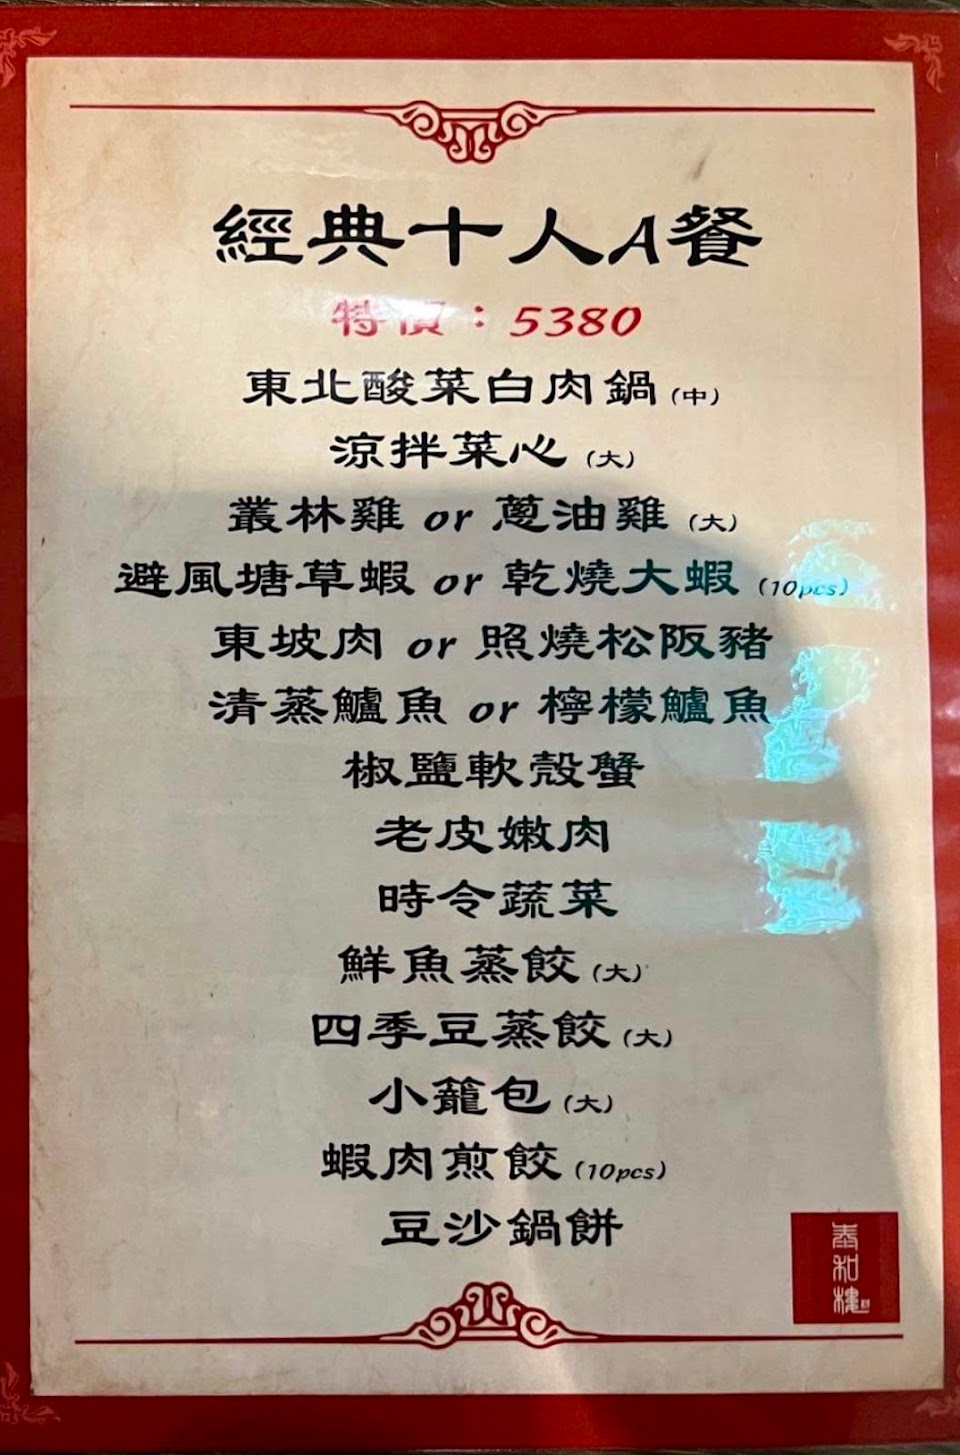 經典十人A餐
特價：5380
東北酸菜白肉鍋(中)
涼拌菜心 (大)
叢林雞 or 蔥油雞 (大)
避風塘草蝦 or 乾燒大蝦 (10pcs)
東坡肉 or 照燒松阪豬
清蒸鱸魚 or 檸檬鱸魚
椒鹽軟殼蟹
老皮嫩肉
時令蔬菜
鮮魚蒸餃(大)
四季豆蒸餃(大)
小籠包(大)
蝦肉煎餃(10pcs)
豆沙鍋餅
泰和樓